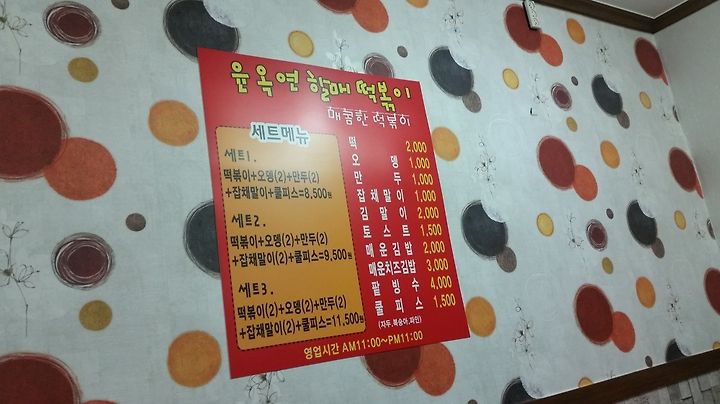 윤옥연 할매 떡볶이
매콤한 떡볶이
세트메뉴
세트1.
떡볶이+오뎅(2)+만두(2)
+잡채말이+쿨피스=8,500원
세트2.
떡볶이+오뎅(2)+만두(2)
+잡채말이(2)+쿨피스=9,500원
세트3.
떡볶이(2)+오뎅(2)+만두(2)
+잡채말이(2)+쿨피스=11,500원
떡 2,000
오뎅 1,000
만두 1,000
잡채말이 1,000
김말이 2,000
토스트 1,500
매운김밥 2,000
매운치즈김밥 3,000
팥빙수 4,000
쿨피스 1,500
(자두,복숭아,파인)
영업시간 AM11:00~PM11:00